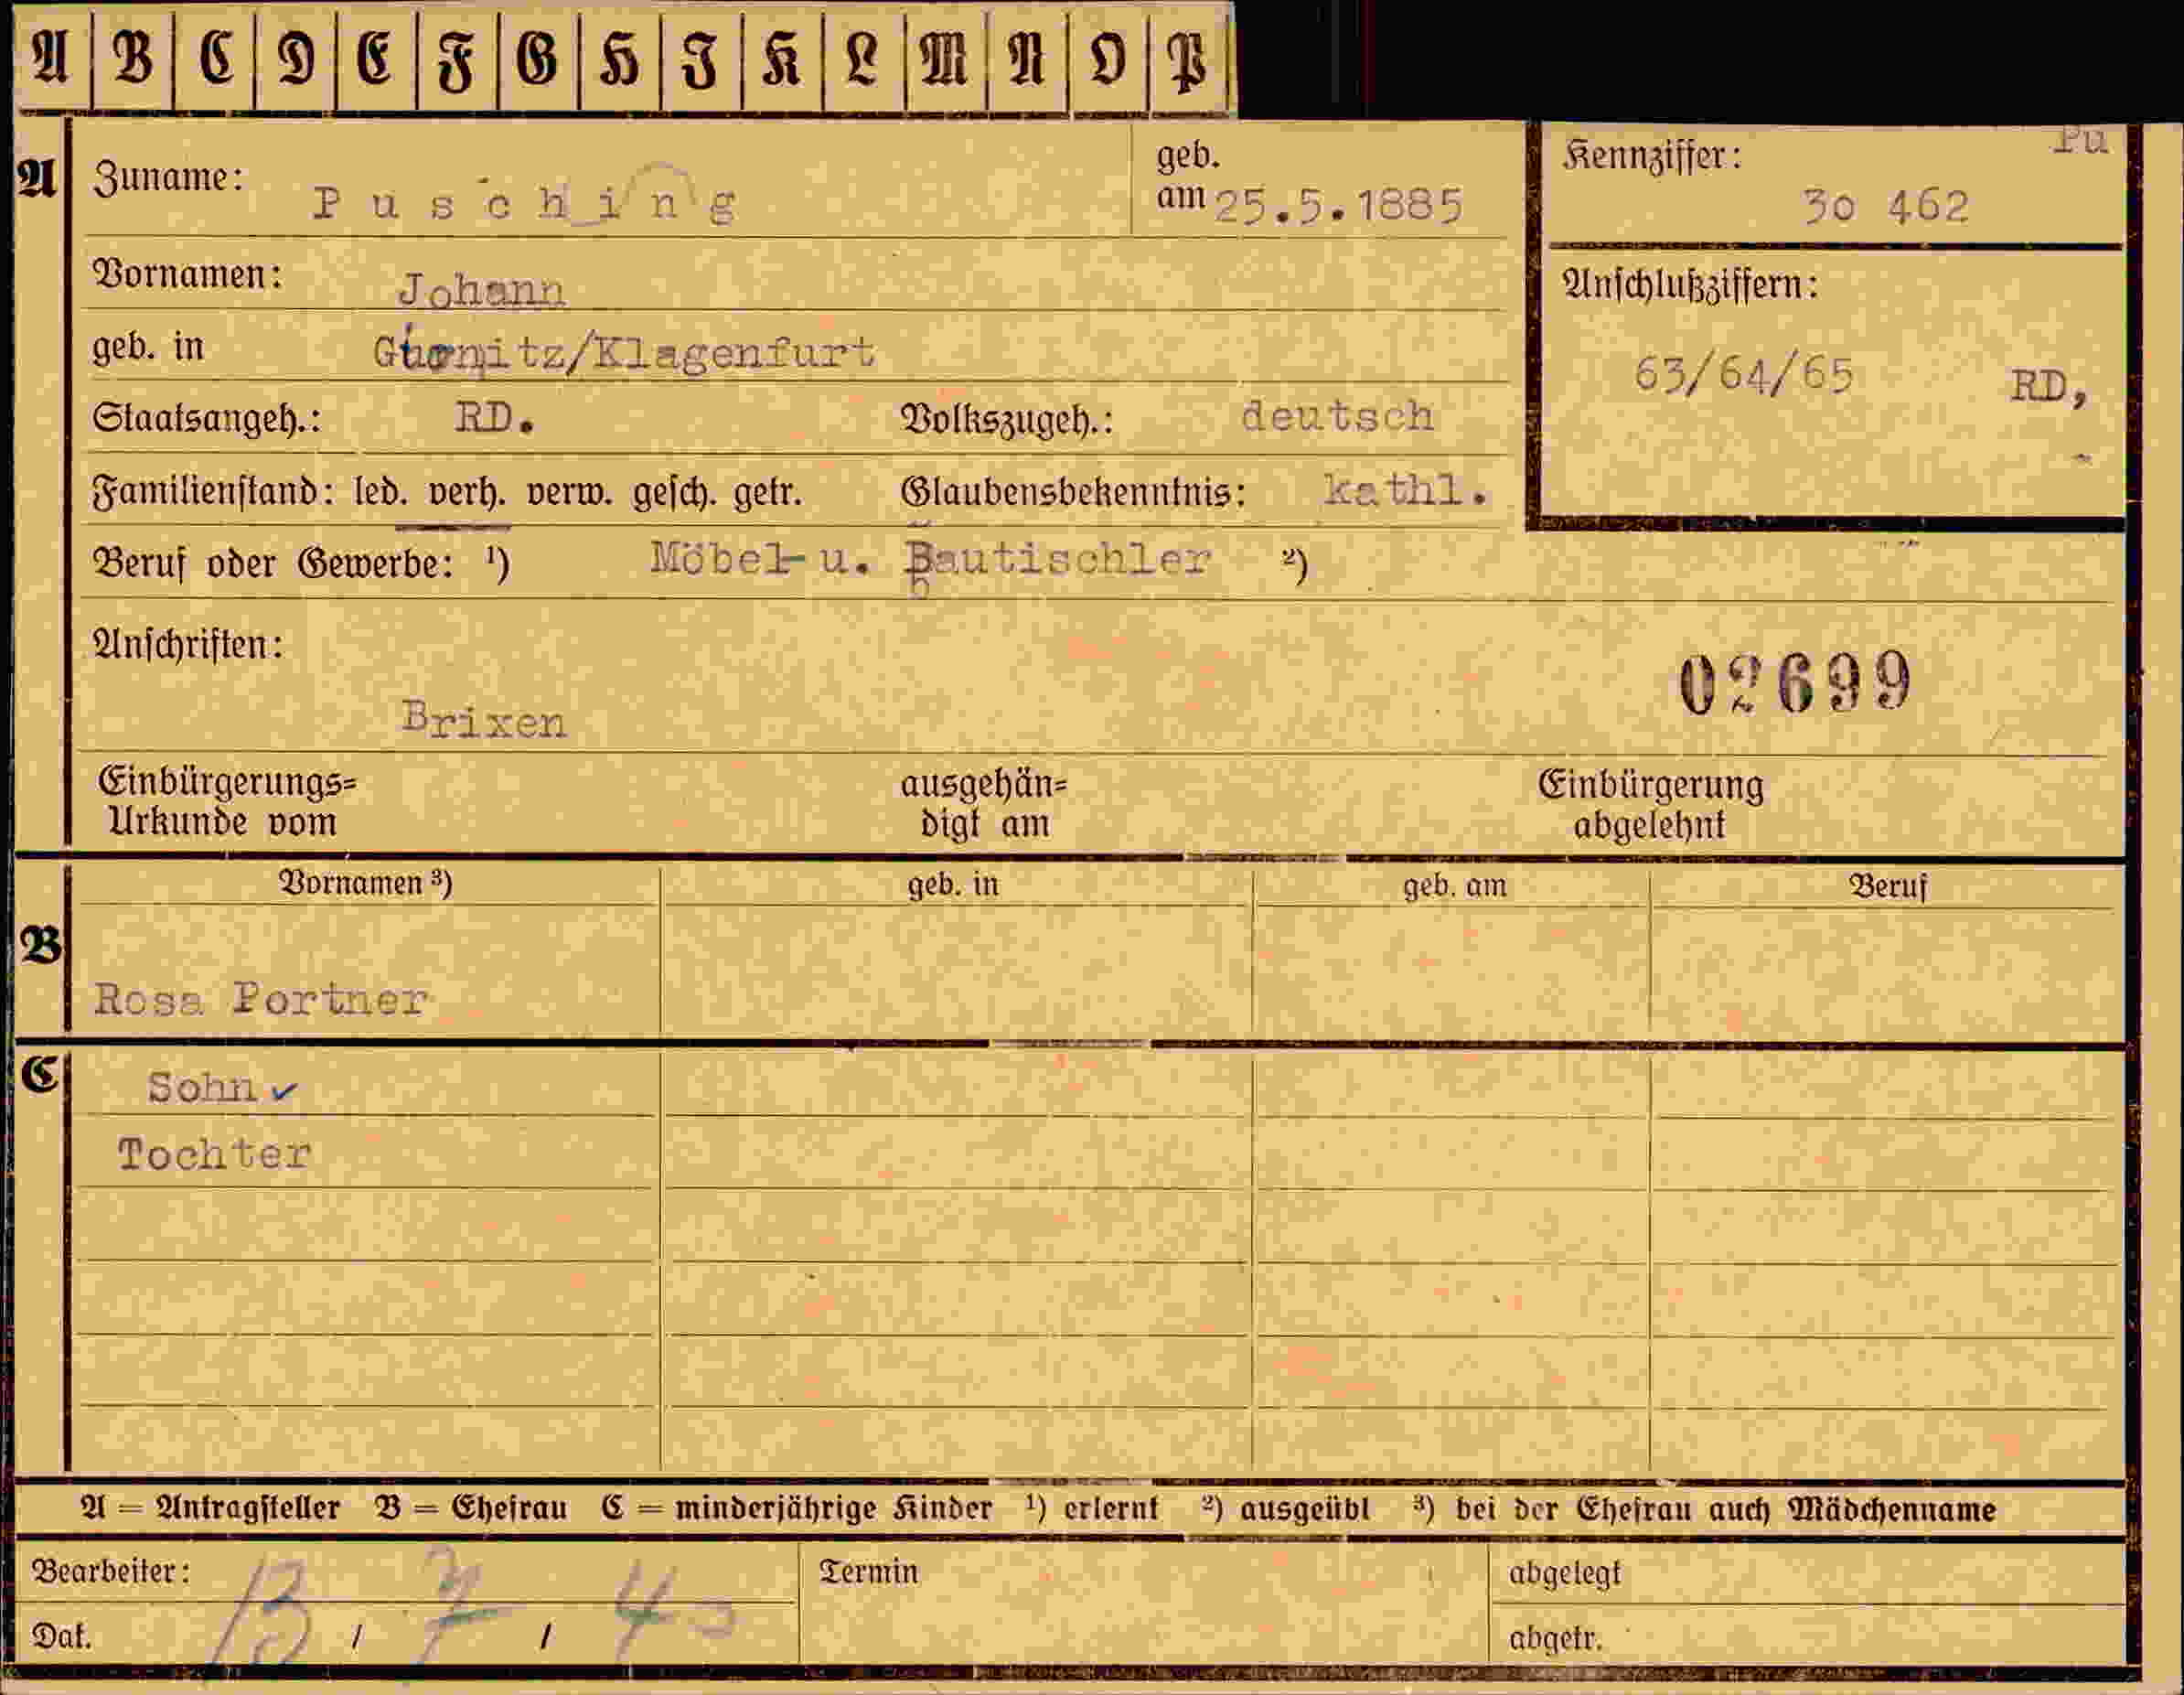 A B C D E F G H I K L M N O P
Pu
A Zuname: Pusching geb. am 25.5.1885 Kennziffer: 30 462
Vornamen: Johann Anschlußziffern:
geb. in /Klagenfurt 63/64/65 RD,
Staatsangeh.: RD. Volkszugeh.: deutsch
Familienstand: led. verh. verw. gesch. getr. Glaubensbekenntnis: kathl.
Beruf oder Gewerbe: ¹) Möbel- u. Bautischler ²)
Anschriften: 02699
Brixen
Einbürgerungs= ausgehän= Einbürgerung
Urkunde vom digt am abgelehnt
Vornamen ³) geb. in geb. am Beruf
B
Rosa Portner
C Sohn ✓
Tochter
A = Antragsteller B = Ehefrau C = minderjährige Kinder ¹) erlernt ²) ausgeübt ³) bei der Ehefrau auch Mädchenname
Bearbeiter: Termin abgelegt
Dat. 13 / 7 / 40 abgetr.